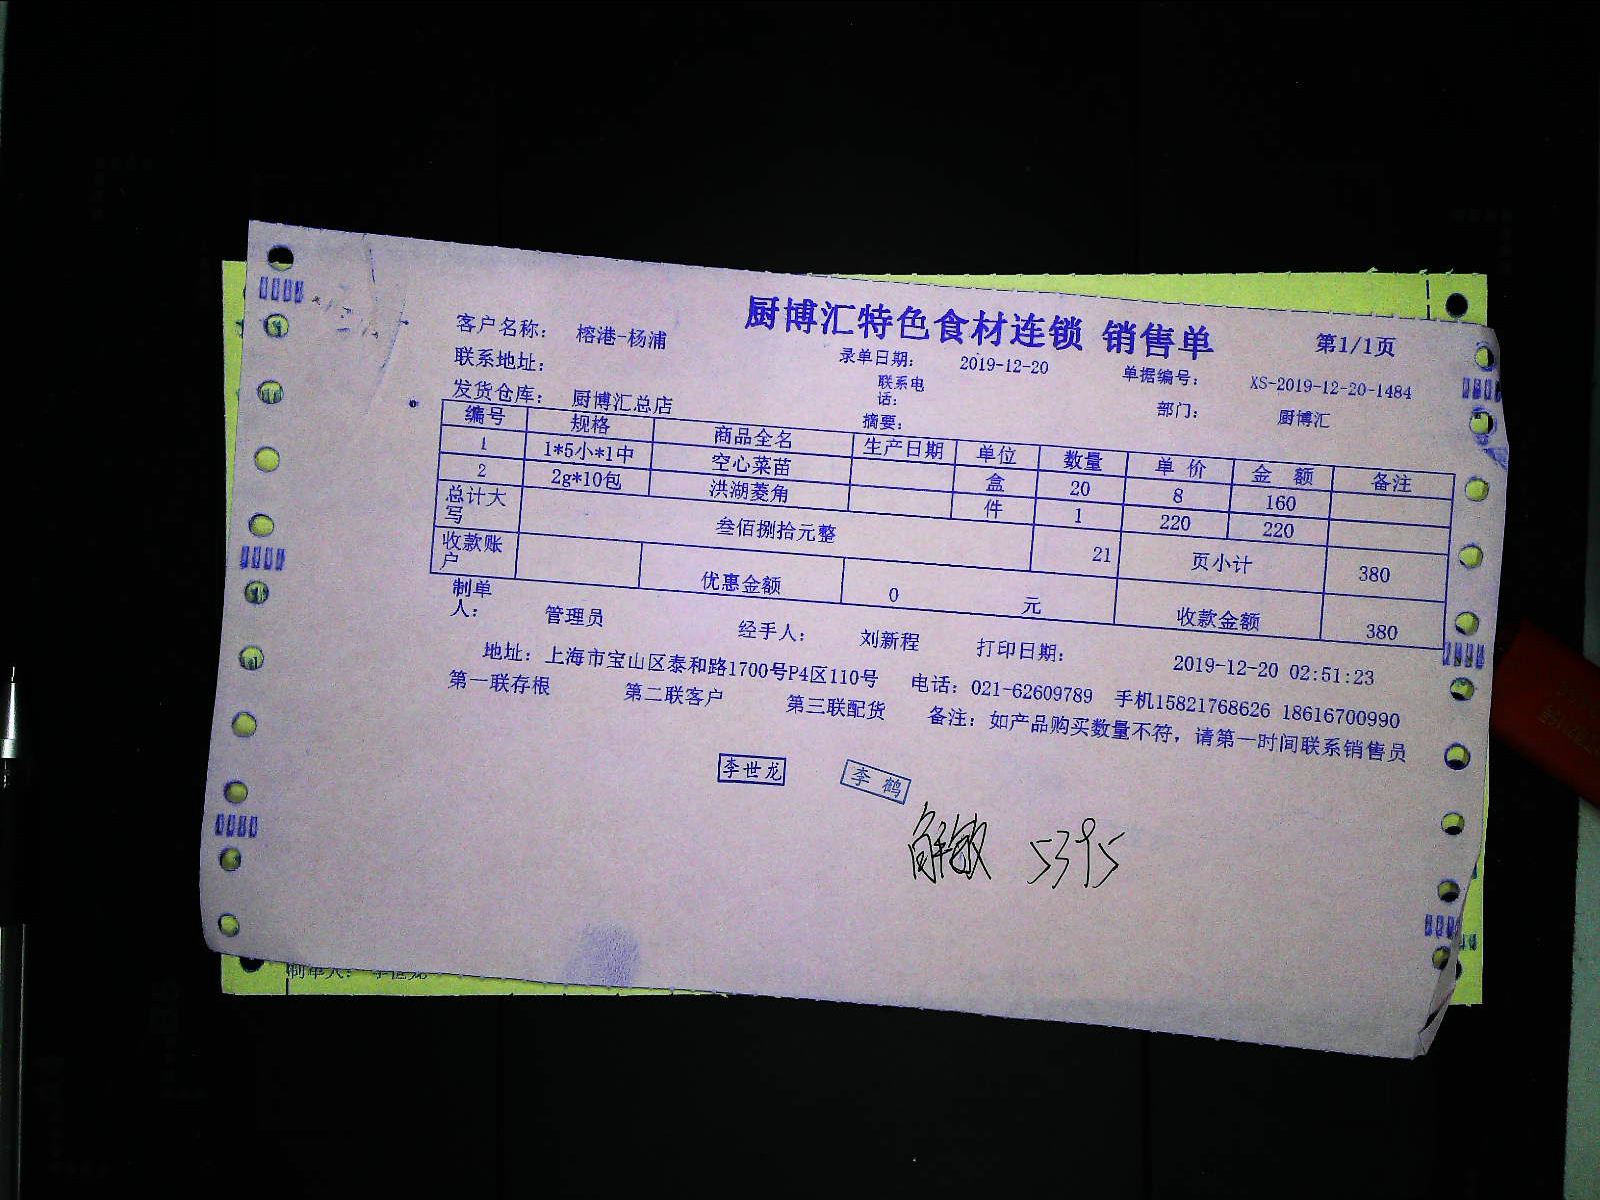 厨博汇特色食材连锁 销售单
第1/1页
客户名称: 榕港-杨浦
录单日期: 2019-12-20
单据编号: XS-2019-12-20-1484
联系地址:
联系电话:
部门: 厨博汇
发货仓库: 厨博汇总店
摘要:
编号 规格 商品全名 生产日期 单位 数量 单 价 金 额 备注
1 1*5小*1中 空心菜苗 盒 20 8 160
2 2g*10包 洪湖菱角 件 1 220 220
总计大写 叁佰捌拾元整 21 页小计 380
收款账户 优惠金额 0 元 收款金额 380
制单人: 管理员 经手人: 刘新程 打印日期: 2019-12-20 02:51:23
地址: 上海市宝山区泰和路1700号P4区110号 电话: 021-62609789 手机15821768626 18616700990
第一联存根 第二联客户 第三联配货 备注: 如产品购买数量不符, 请第一时间联系销售员
李世龙 李鹤
5395
制单人: